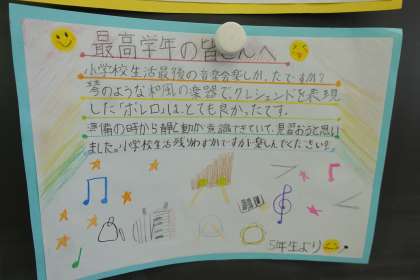 最高学年の皆さんへ
小学校生活最後の音楽会楽しかったですか?
琴のような和風の楽器で、クレシェンドを表現
した「ボレロ」は、とても良かったです。
準備の時から静と動が意識できていて、見習おうと思い
ました。小学校生活残りわずかですが楽しんでください。
5年生より